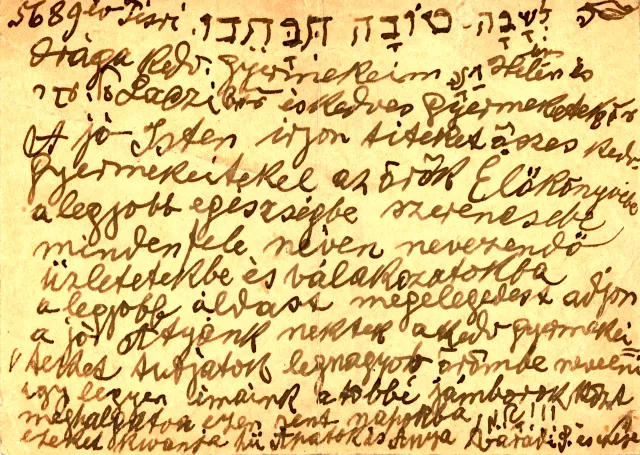 5689 év Tisri לשנה טובה תכתבו
drága kedv. gyermekeim Helén és
Laczi és kedves gyermekeitek
A jó Isten irjon titeket összes kedv
gyermekeitekel az örök Élőkönyvibe
a legjobb egészségbe szerencsébe
mindenféle néven nevezendő
üzletetekbe és válakozatokba
a legjobb áldást megelégedést adjon
a jó Atyánk nektek a kedv gyermekei
teket tudjátok legnagyob örömbe nevelni
ugy legyen imáink a többi jámborok közt
meghalgatva ezen sent napokba אמן!!!
ezeket kivánja hű Apátok és Anya